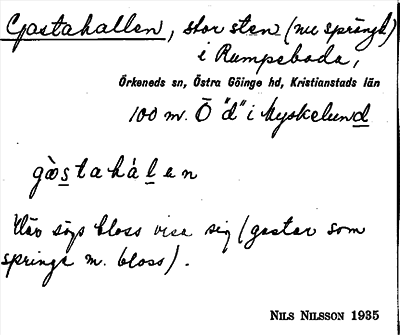 Gastahallen, stor sten (nu sprängd)
i Rumpeboda,
Örkeneds sn, Östra Göinge hd, Kristianstads län
100 m. Ö "d" i Myskelund
gàstahálen
Där sågs bloss visa sig (gastar som
springa m. bloss).
NILS NILSSON 1935